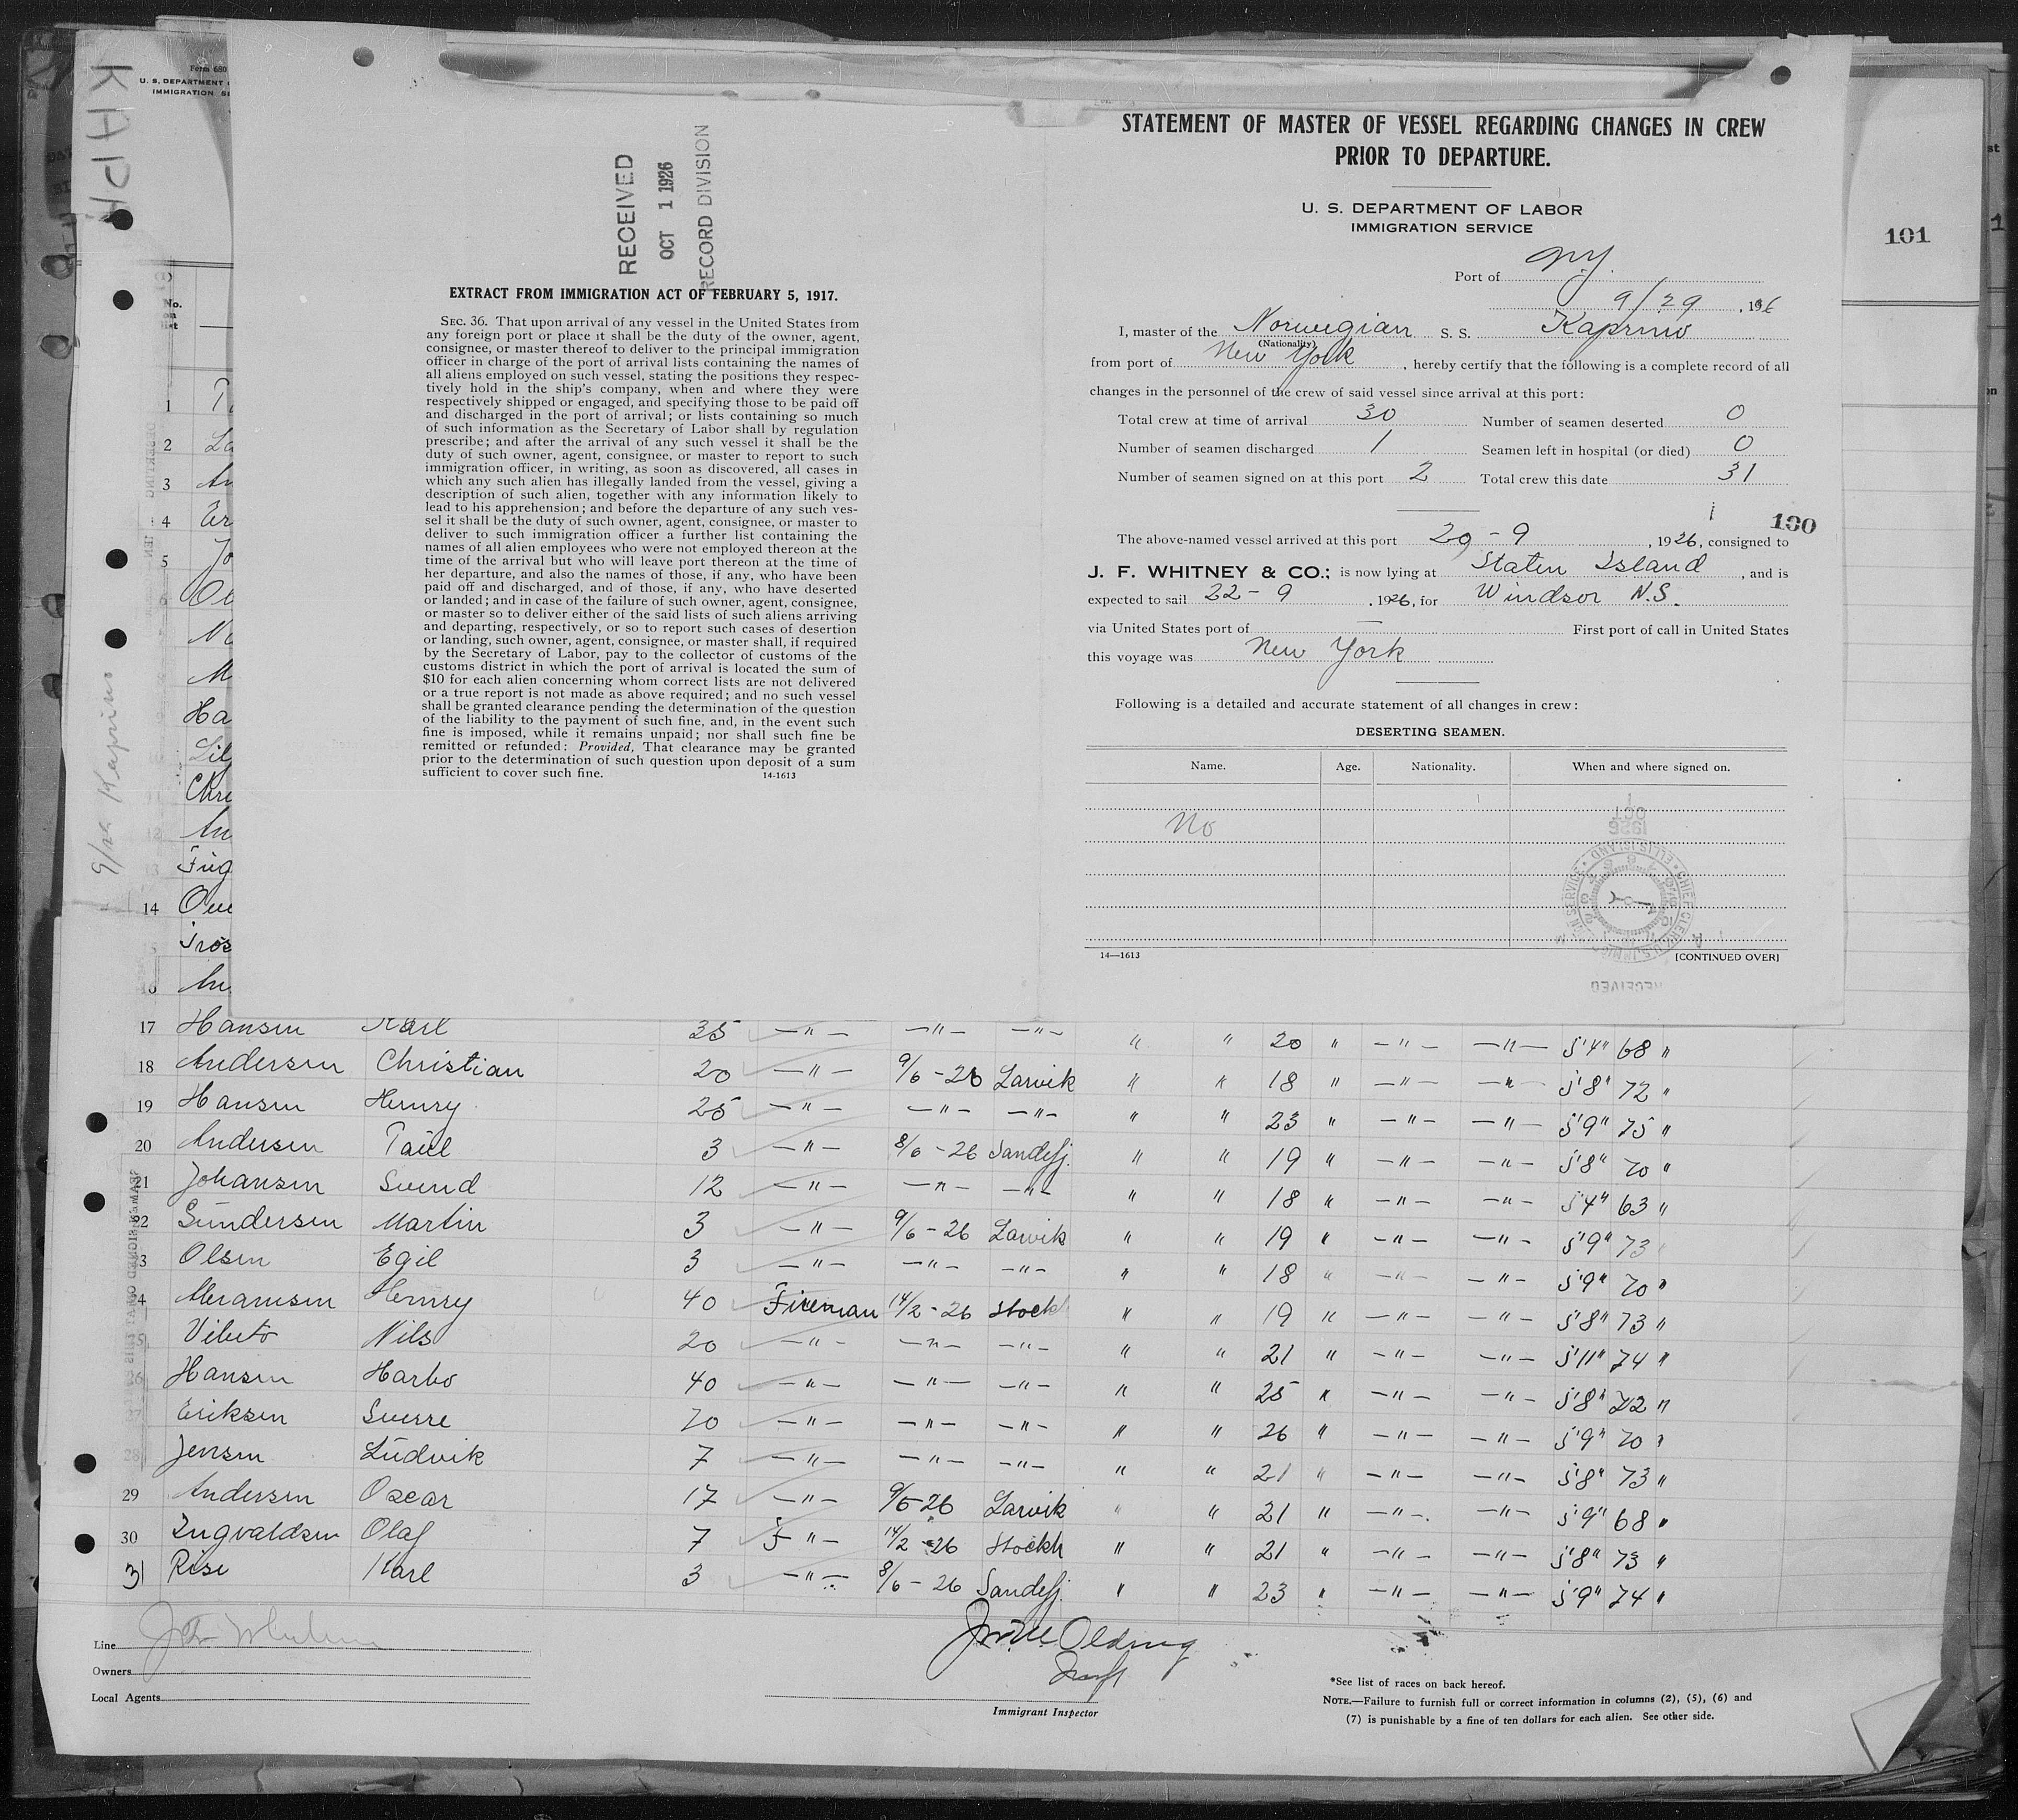 KAPR
Form 680
U. S. DEPARTMENT
IMMIGRATION SE
RECEIVED
OCT 1 1926
RECORD DIVISION
EXTRACT FROM IMMIGRATION ACT OF FEBRUARY 5, 1917.
SEC. 36. That upon arrival of any vessel in the United States from
any foreign port or place it shall be the duty of the owner, agent,
consignee, or master thereof to deliver to the principal immigration
officer in charge of the port of arrival lists containing the names of
all aliens employed on such vessel, stating the positions they respec-
tively hold in the ship's company, when and where they were
respectively shipped or engaged, and specifying those to be paid off
and discharged in the port of arrival; or lists containing so much
of such information as the Secretary of Labor shall by regulation
prescribe; and after the arrival of any such vessel it shall be the
duty of such owner, agent, consignee, or master to report to such
immigration officer, in writing, as soon as discovered, all cases in
which any such alien has illegally landed from the vessel, giving a
description of such alien, together with any information likely to
lead to his apprehension; and before the departure of any such ves-
sel it shall be the duty of such owner, agent, consignee, or master to
deliver to such immigration officer a further list containing the
names of all alien employees who were not employed thereon at the
time of the arrival but who will leave port thereon at the time of
her departure, and also the names of those, if any, who have been
paid off and discharged, and of those, if any, who have deserted
or landed; and in case of the failure of such owner, agent, consignee,
or master so to deliver either of the said lists of such aliens arriving
and departing, respectively, or so to report such cases of desertion
or landing, such owner, agent, consignee, or master shall, if required
by the Secretary of Labor, pay to the collector of customs of the
customs district in which the port of arrival is located the sum of
$10 for each alien concerning whom correct lists are not delivered
or a true report is not made as above required; and no such vessel
shall be granted clearance pending the determination of the question
of the liability to the payment of such fine, and, in the event such
fine is imposed, while it remains unpaid; nor shall such fine be
remitted or refunded: Provided, That clearance may be granted
prior to the determination of such question upon deposit of a sum
sufficient to cover such fine. 14-1613
STATEMENT OF MASTER OF VESSEL REGARDING CHANGES IN CREW
PRIOR TO DEPARTURE.
U. S. DEPARTMENT OF LABOR
IMMIGRATION SERVICE
Port of NY.
9/29, 1926
I, master of the Norwegian S. S. Kaprino
(Nationality)
from port of New York, hereby certify that the following is a complete record of all
changes in the personnel of the crew of said vessel since arrival at this port:
Total crew at time of arrival 30 Number of seamen deserted 0
Number of seamen discharged 1 Seamen left in hospital (or died) 0
Number of seamen signed on at this port 2 Total crew this date 31
100
The above-named vessel arrived at this port 20 - 9, 1926, consigned to
J. F. WHITNEY & CO.; is now lying at Staten Island, and is
expected to sail 22 - 9, 1926, for Windsor N.S.
via United States port of — First port of call in United States
this voyage was New York
Following is a detailed and accurate statement of all changes in crew:
DESERTING SEAMEN.
Name. Age. Nationality. When and where signed on.
No
14—1613 [CONTINUED OVER]
RECEIVED
101
9/29 Kaprino
No. on list
1
2 La
3 An
4 Er
5 Jo
Ha
Chre
An
14
An
17 Hansen Karl 35 —"— —"— —"— " " 20 " —"— —"— 5'4" 68 "
18 Andersen Christian 20 —"— 9/6 - 26 Larvik " " 18 " —"— —"— 5'8" 72 "
19 Hansen Henry 25 —"— —"— —"— " " 23 " —"— —"— 5'9" 75 "
20 Andersen Paul 3 —"— 8/6 - 26 Sandefj. " " 19 " —"— —"— 5'8" 70 "
21 Johansen Svend 12 —"— —"— —"— " " 18 " —"— —"— 5'4" 63 "
22 Gundersen Martin 3 —"— 9/6 - 26 Larvik " " 19 " —"— —"— 5'9" 73
3 Olsen Egil 3 —"— —"— —"— " " 18 " —"— —"— 5'9" 70 "
24 Henry 40 Fireman 14/2 - 26 Stock " " 19 " —"— —"— 5'8" 73 "
25 Nils 20 —"— —"— —"— " " 21 " —"— —"— 5'11" 74 "
26 Hansen Harbo 40 —"— —"— —"— " " 25 " —"— —"— 5'8" 72 "
27 Eriksen Sverre 20 —"— —"— —"— " " 26 " —"— —"— 5'9" 70 "
28 Jensen Ludvik 7 —"— —"— —"— " " 21 " —"— —"— 5'8" 73 "
29 Andersen Oscar 17 —"— 9/6-26 Larvik " " 21 " —"— —"— 5'9" 68 "
30 Ingvaldsen Olaf 7 —"— 14/2 - 26 Stockh " " 21 " —"— —"— 5'8" 73 "
31 Rise Karl 3 —"— 8/6 - 26 Sandefj. " " 23 " —"— —"— 5'9" 74 "
Line
Owners
Local Agents
Olding
Immigrant Inspector
*See list of races on back hereof.
NOTE.—Failure to furnish full or correct information in columns (2), (5), (6) and
(7) is punishable by a fine of ten dollars for each alien. See other side.